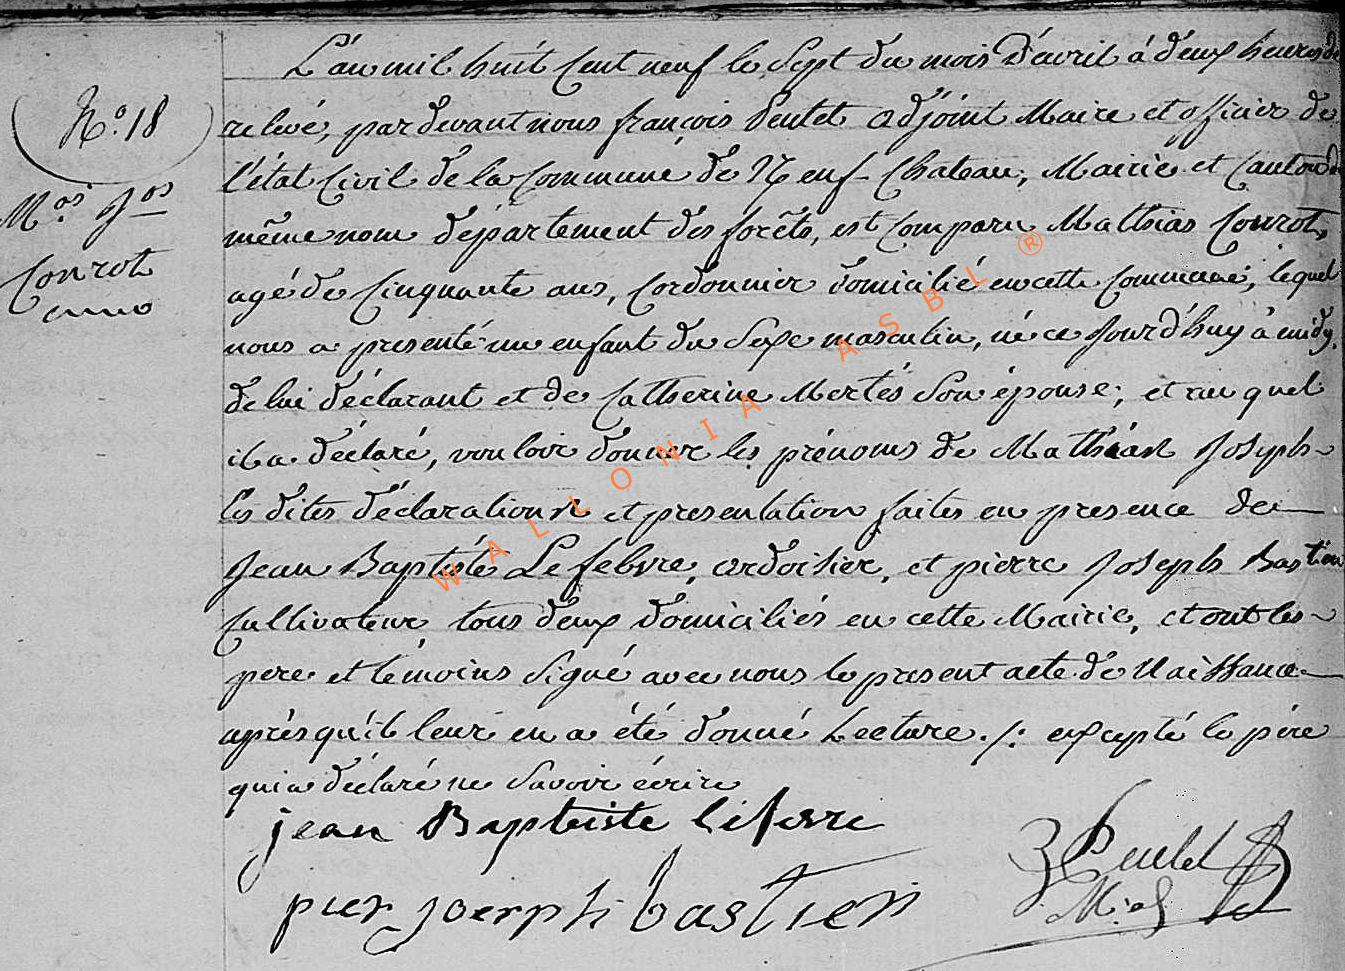 N.o 18
M.as J.os
Conrot
L'an mil huit cent neuf le sept du mois d'avril à deux heures de
relevé, pardevant nous françois Peulet adjoint Maire et officier de
l'état Civil de la Commune de Neuf-Chateau, Mairie et Canton du
même nom département des forêts, est Comparu Mathias Conrot,
agé de Cinquante ans, Cordonnier domicilié en cette Commune, lequel
nous a presenté un enfant du Sexe masculin, né ce Jourd'huy à midy,
de lui déclarant et de Catherine Mertés Son épouse; et au quel
il a déclaré, vouloir donner les prénoms de Mathias Joseph
les dites déclaration et presentation faites en presence de
Jean Baptiste Lefebvre, ardoisier, et pierre Joseph Bastien
Cultivateur, tous deux domiciliés en cette Mairie, et ont les
pere et témoins Signé avec nous le present acte de Naissance
après qu'il leur en a été donné Lecture ./. excepté le père
qui a déclaré ne Savoir écrire
jean Baptiste lefevre
pier joserph bastien
Peulet
WALLONIA ASBL ®